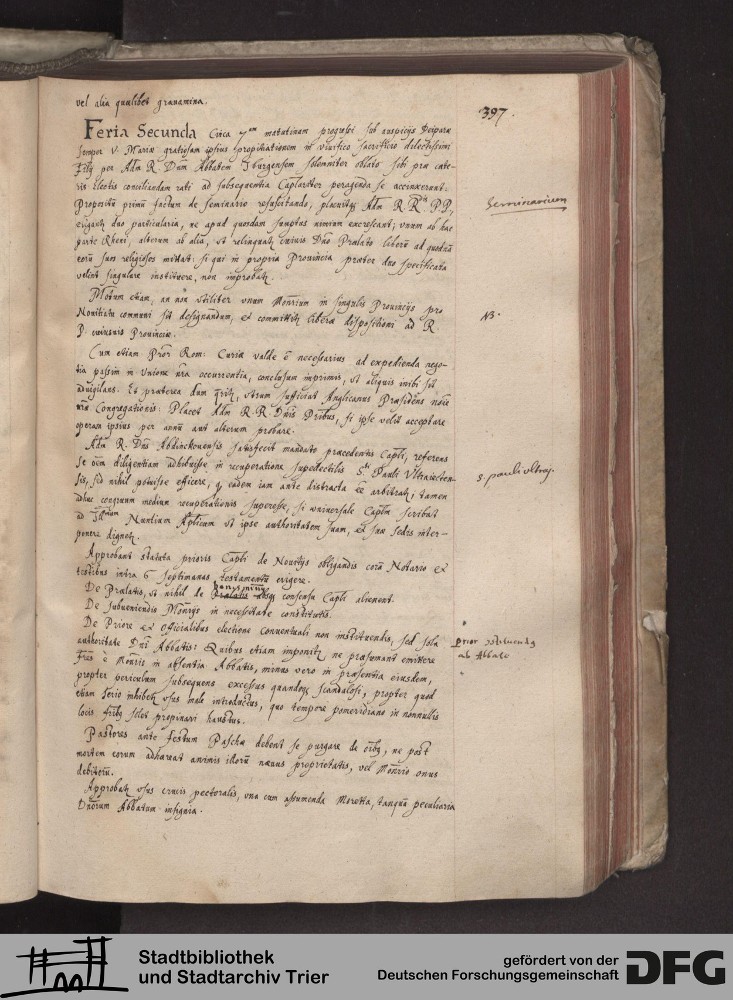 vel alia quælibet gravamina.
397.
Feria Secunda Circa 7am matutinam progressi sub auspicijs Deiparæ
semper V. Mariæ gratiosam ipsius propitiationem in vivifico sacrificio dilectissimi
Filij per Adm R. Dnm Abbatem Iburgensem solenniter oblato sibi præ cæte-
ris Electis conciliandam rati ad subsequentia Caplariter peragenda se accinxerunt.
Propositū primū factum de seminario resuscitando, placuitq Adm R.R.dis P.P.,
Seminarium
erigant duo particularia, ne apud quosdam sumptus nimium excrescant; unum ab hac
parte Rheni, alterum ab alia, et relinquat cuivis Dno Prælato liberū ad quodnā
eorū suos religiosos mittat: si qui in propria Provincia præter duo specificata
velint singulare instituere, non improbat.
Motum etiam, an nō utiliter unum Monrium in singulis Provincijs pro
Novitiatu communi sit designandum, et committit liberæ dispositioni ad R.
NB.
P. cuiusvis Provinciæ.
Cum etiam Prior Rom: Curiæ valde ē necessarius ad expedienda nego-
tia passim in Unione nra occurrentia, conclusum inprimis, ut aliquis inibi sit
invigilans. Et præterea dum qrit, utrum sufficiat Anglicanus Præsidens noīe
nræ Congregationis: Placet Adm R.R. Dnis Pribus, si ipse velit acceptare
operam ipsius per annū aut alterum probare.
Adm R. Dns Abdinckovensis satisfecit mandato præcedentis Capli, referens
se oēm diligentiam adhibuisse in recuperatione supellectilis S.ti Pauli Ultraiecten-
sis, sed nihil potuisse efficere, q eadem iam ante distracta ēe arbitrat; tamen
S. Pauli Ultraj.
adhuc congruum medium recuperationis superesse, si universale Caplm scribat
ad Illmum Nuntium Aplicum ut ipse authoritatem suam, et suæ Sedis inter-
ponere dignet.
Approbant statuta prioris Capli de Novitijs obligandis corā Notario et
testibus intra 6 septimanas testamentū erigere.
De Prælatis, ut nihil de bonis absq consensu Capli alienent.
De subveniendis Monrijs in necessitate constitutis.
De Priore et officialibus electione conventuali non instituendis, sed sola
authoritate Dni Abbatis: Quibus etiam imponit, ne præsumant emittere
Prior instituendus
ab Abbate
Fres è Monrio in absentia Abbatis, minus vero in præsentia eiusdem,
propter periculum subsequens excessus quandoq scandalosi, propter quod
etiam serio inhibet usus male introductus, quo tempore pomeridiano in nonnullis
locis fribq solet propinari haustus.
Pastores ante festum Paschæ debent se purgare de oībq, ne post
mortem eorum adhæreat animis illorū nævus proprietatis, vel Monrio onus
debitorū.
Approbat usus crucis pectoralis, una cum assumenda Mozetta, tanquā peculiaria
Dnorum Abbatum insignia.
Stadtbibliothek
und Stadtarchiv Trier
gefördert von der
Deutschen Forschungsgemeinschaft
DFG